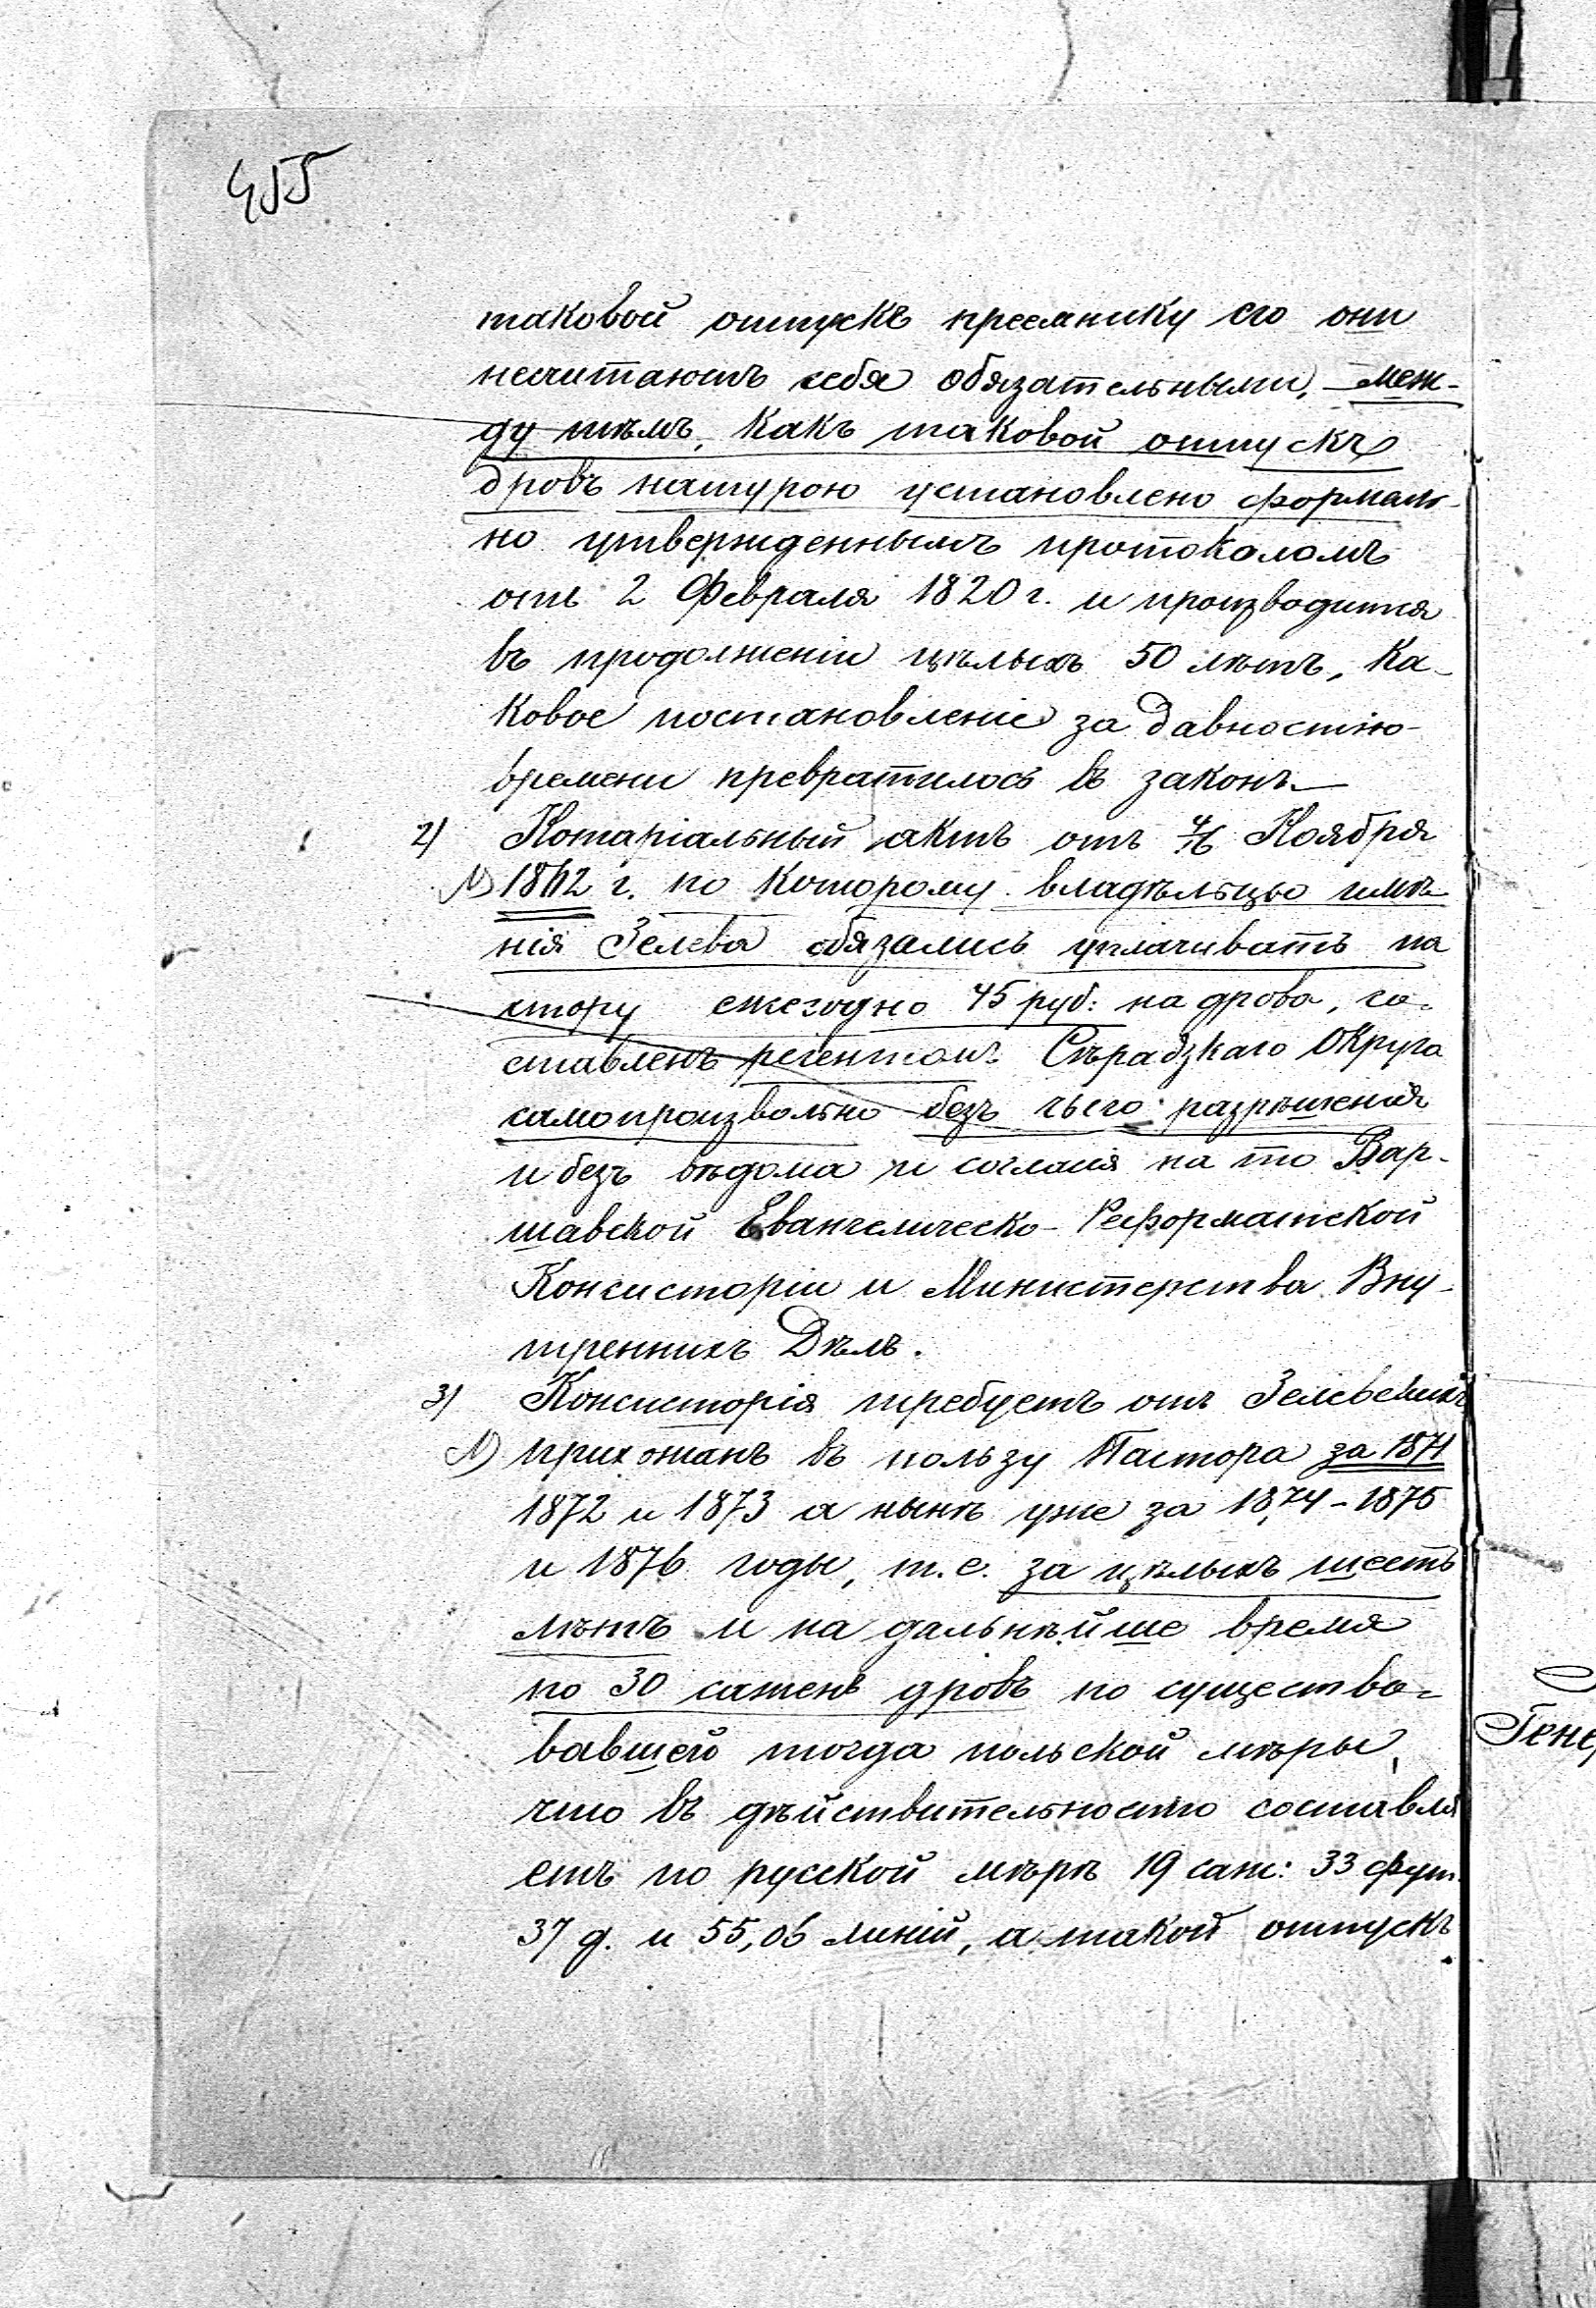 455
таковой отпускъ преемнику его они
несчитаютъ себя обязательными, меж-
ду тѣмъ, какъ таковой отпускъ
дровъ натурою установлено формаль-
но утвержденнымъ протоколомъ
отъ 2 Февраля 1820 г. и производится
въ продолженіи цѣлыхъ 50 лѣтъ, ка-
ковое постановленіе за давностію
времени превратилось въ законъ.—
2) Нотаріальный актъ отъ 4/16 Ноября
1862 г. по которому владѣльцы имѣ-
нія Зелева обязались уплачивать па
стору ежегодно 45 руб: на дрова, со-
ставленъ регентомъ Сѣрадзкаго Округа
самопроизвольно безъ чьего разрѣшенія
и безъ вѣдома и согласія на то Вар-
шавской Евангелическо-Реформатской
Консисторіи и Министерства Вну-
треннихъ Дѣлъ.
3) Консисторія требуетъ отъ Зелевскихъ
прихожанъ въ пользу Пастора за 1871
1872 и 1873 а нынѣ уже за 1874-1875
и 1876 годы, т.е. за цѣлыхъ шесть
лѣтъ и на дальнѣйше время
по 30 сажень дровъ по существо-
вавшей тогда польской мѣры,
что въ дѣйствительностію составля
етъ по русской мѣрѣ 19 саж: 33 фут.
37 д. и 55,06 линій, а такой отпускъ
Гене